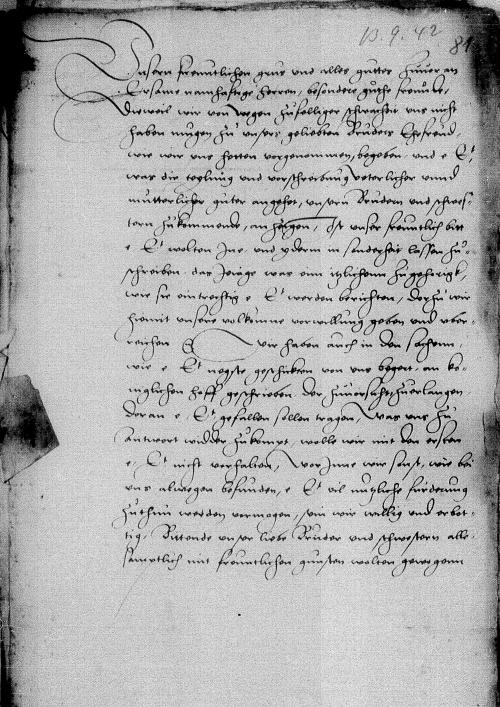 13. 9. 42
81
Unsern freuntlichen grus und alles guttes zuvor an
Ersame namhafftige herren, besondere guthe freunde,
Dieweil wir von wegen zufelliger schwacheit uns nicht
haben mugen zu unsers geliebten Bruders Ehefreud,
wie wir uns hetten vorgenommen, begeben und e Et
was die teylung und verschreibung veterlicher unnd
mutterlicher guter angehet, unsern Brudern und schwes-
tern zukommende, an
, Ist unser freuntlich bitt
e Et wolten Ine und yderm in sonderheit lassen zu-
schreiben das Jenige was eim itzlichenn zugehorigk,
wie sie eintrechtig e Et werden berichten, Dorzu wir
hiemit unsere volkumne vorwillung geben und uber-
reichen
Wir haben auch in den sachenn,
wie e Et negste geschickten von uns begert, an ko-
niglichen hoff geschrieben, der zuversicht
dor an e Et gefallen sollen tragen, Was uns zu
antwort widder zukompt, wolle wir mit den ersten
e Et nicht verhalten, Wor Inne wir sonst, wie bei
uns alwegen befunden, e Et vil nutzliche furderung
zuthun werden vermogen, sein wir willig und erbot-
tig, Bittende unser liebe Bruder und schwestern alle-
samptlich mit freuntlichen gunsten wolten gewogenn